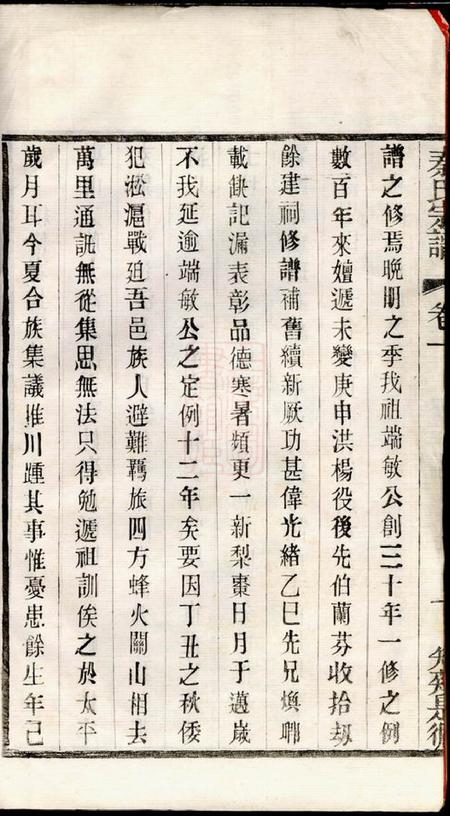 秦氏宗譜
卷一
一
譜之修焉晚明之季我祖端敏公創三十年一修之例
數百年來嬗遞未變庚申洪楊役後先伯蘭芬收拾刼
餘建祠修譜補舊續新厥功甚偉光緒乙巳先兄煥
載缺記漏表彰品德寒暑頻更一新梨棗日月于邁歲
不我延逾端敏公之定例十二年矣要因丁丑之秋倭
犯淞滬戰延吾邑族人避難羈旅四方蜂火關山相去
萬里通訊無從集思無法只得勉遞祖訓俟之於太平
歲月耳今夏合族集議推川踵其事惟憂患餘生年已